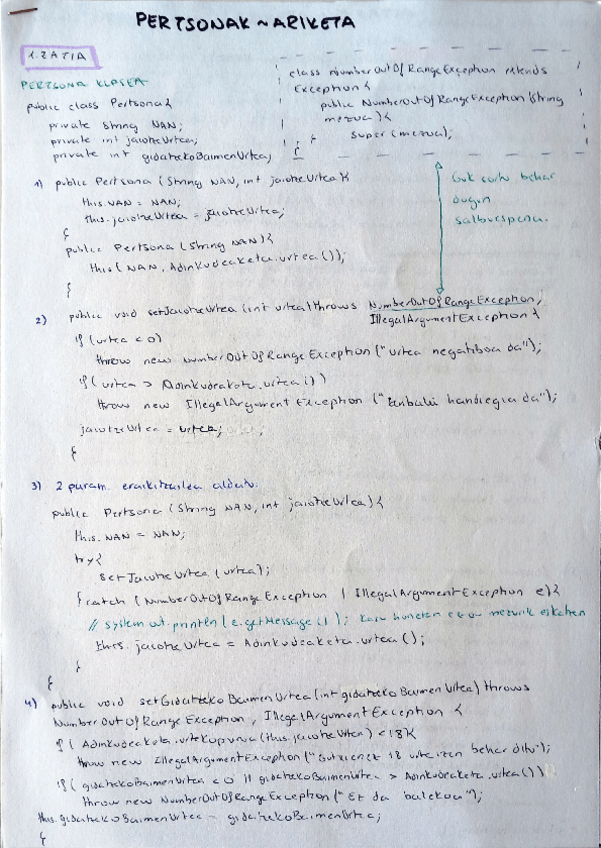 PERTSONAK ~ ARIKETA
1. ZATIA
PERTSONA KLASEA
public class Pertsona{
private String NAN;
private int jaiotzeUrtea;
private int gidatzekoBaimenUrtea;
class NumberOutOfRangeException extends
Exception {
public NumberOutOfRangeException (String
mezua){
super(mezua);
}
{
Guk sortu behar
dugun
salbuespena.
1) public Pertsona (String NAN, int jaiotzeUrtea){
this.NAN = NAN;
this.jaiotzeUrtea = jaiotzeUrtea;
{
public Pertsona (String NAN){
this(NAN, AdinKudeaketa.urtea());
{
2) public void setJaiotzeUrtea (int urtea) throws NumberOutOfRangeException,
IllegalArgumentException {
if (urtea < 0)
throw new NumberOutOfRangeException("urtea negatiboa da");
if (urtea > AdinKudeaketa.urtea())
throw new IllegalArgumentException ("Zenbakia handiegia da");
jaiotzeUrtea = urtea;
{
3) 2 param. eraikitzailea aldatu.
public Pertsona (String NAN, int jaiotzeUrtea){
this.NAN = NAN;
try{
setJaiotzeUrtea (urtea);
{ catch (NumberOutOfRange Exception | IllegalArgumentException e){
// System.out.println(e.getMessage()); kasu honetan ez du mezurik eskatzen
this.jaiotzeUrtea = AdinKudeaketa.urtea();
}
{
4) public void setGidatzekoBaimenUrtea(int gidatzekoBaimenUrtea) throws
NumberOutOfRangeException, IllegalArgumentException {
if (AdinKudeaketa.urtekopurua(this.jaiotzeUrtea) < 18){
throw new IllegalArgumentException("Gutxienez 18 urte izan behar ditu");
if (gidatzekoBaimenUrtea < 0 || gidatzekoBaimenUrtea > AdinKudeaketa.urtea())
throw new NumberOutOfRangeException("Ez da baliozkoa");
this.gidatzekoBaimenUrtea = gidatzekoBaimenUrtea;
{